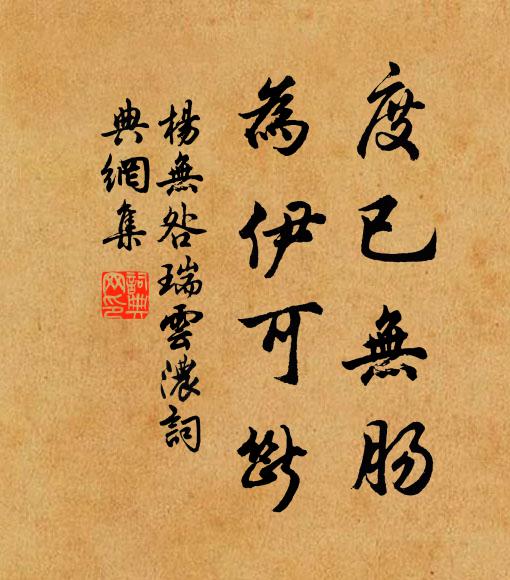 度已無腸
為伊可斷
楊無咎瑞雲濃詞
典網集
詞典網印